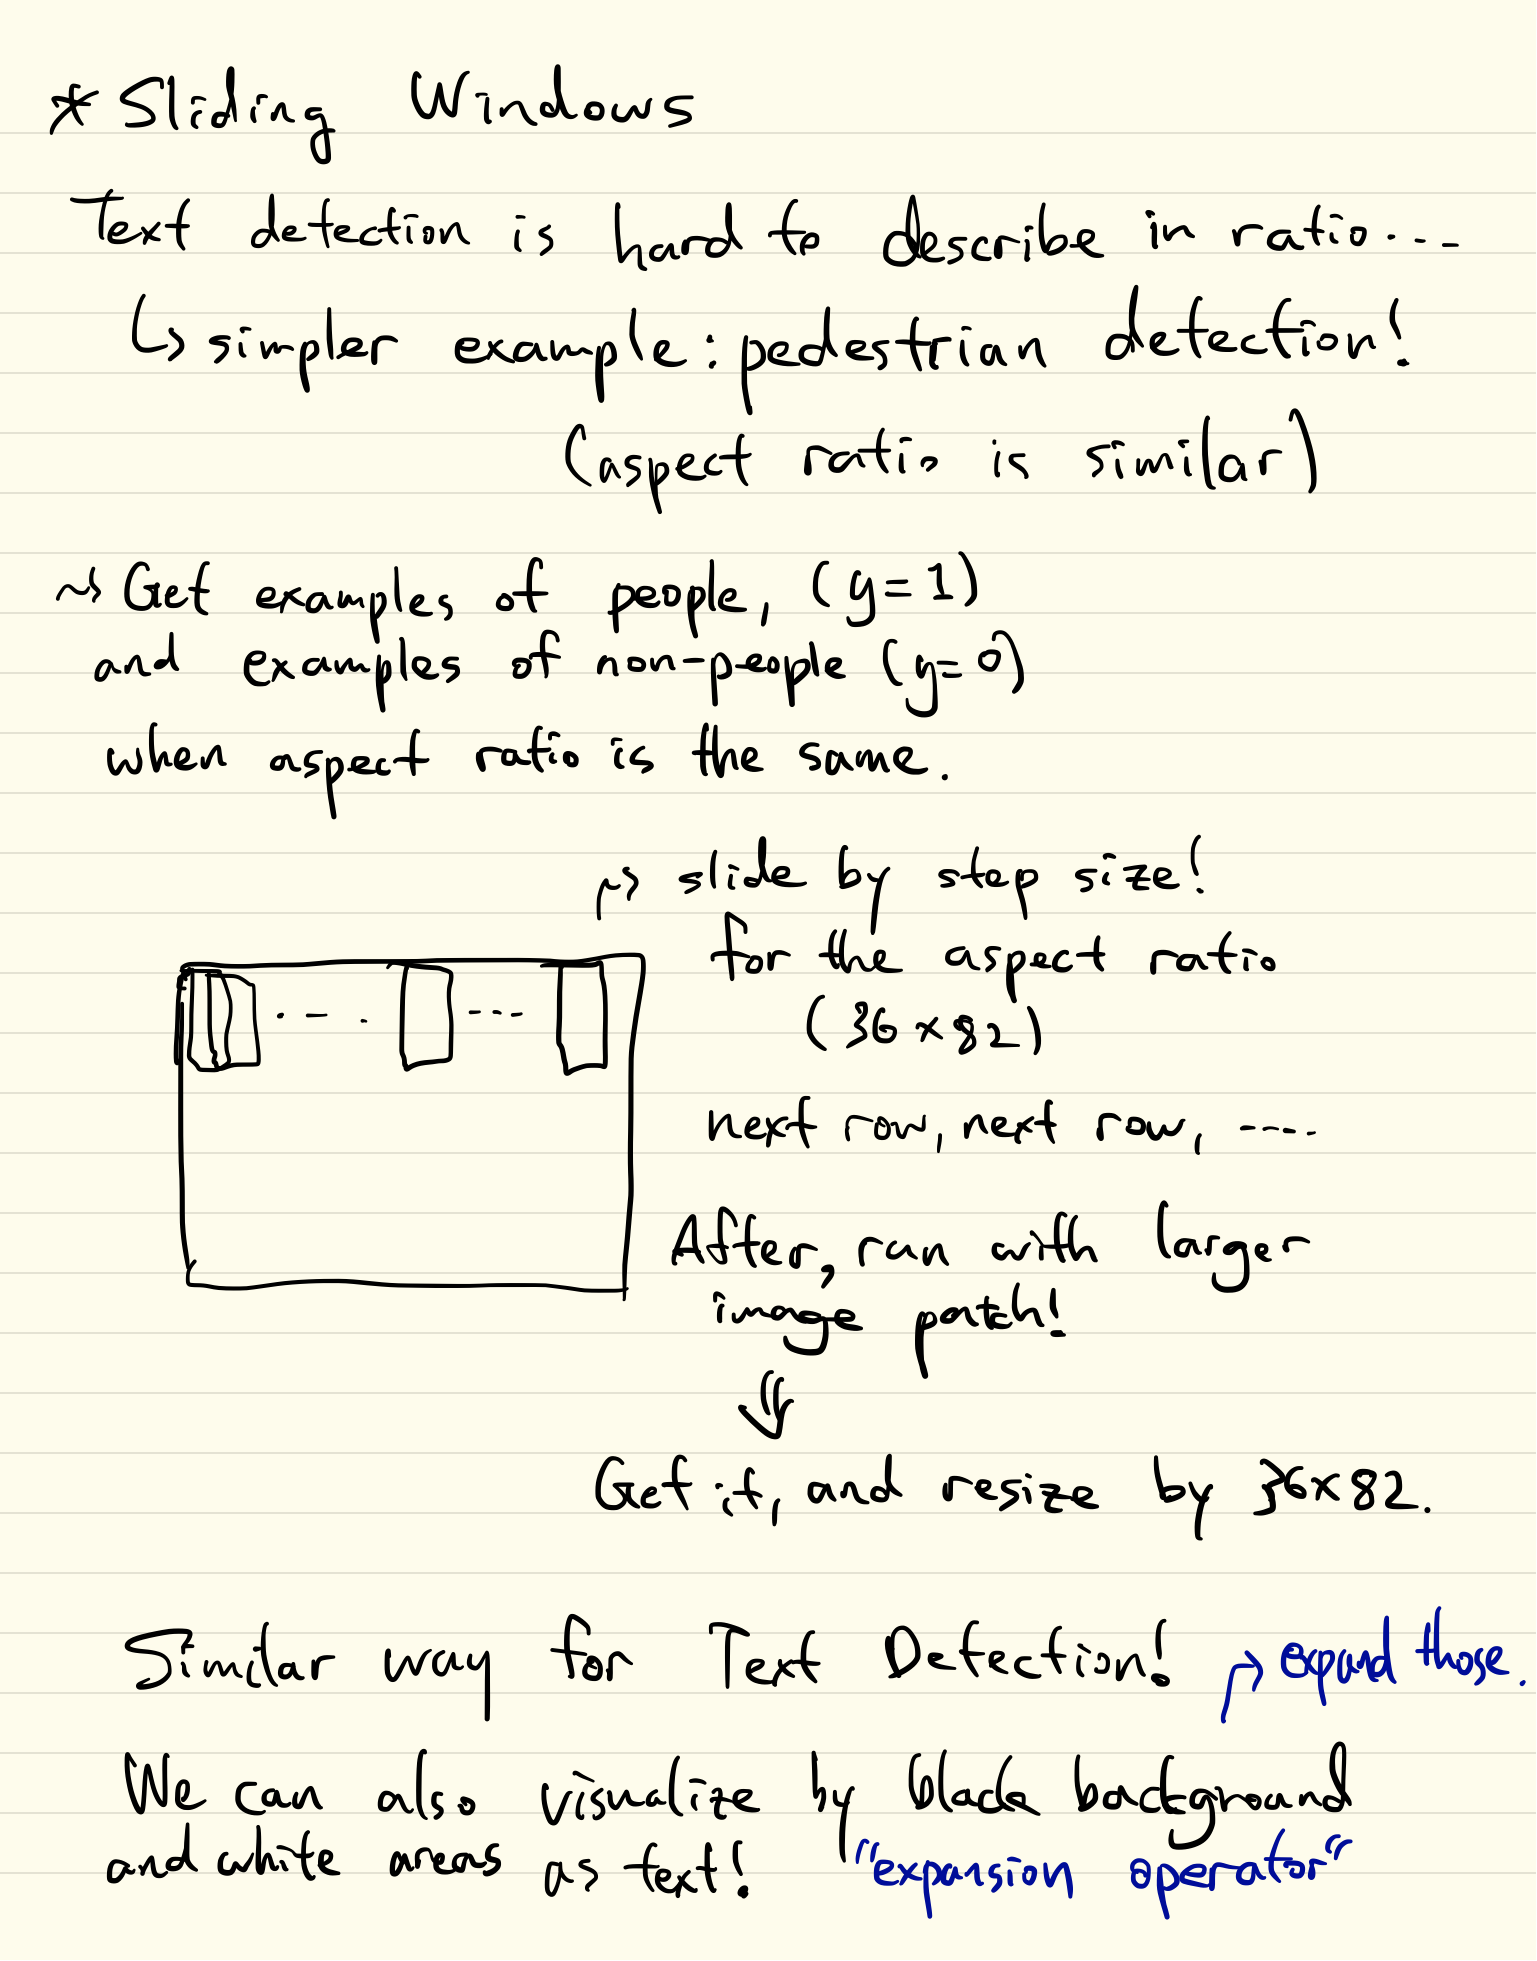 * Sliding Windows
Text detection is hard to describe in ratio...
↳ simpler example: pedestrian detection!
(aspect ratio is similar)
~> Get examples of people, (y=1)
and examples of non-people (y=0)
when aspect ratio is the same.
slide by step size!
for the aspect ratio
(36×82)
next row, next row, ----
After, run with larger
image patch!
⇓
Get it, and resize by 36×82.
Similar way for Text Detection! → expand those.
We can also visualize by black background
and white areas as text! "expansion operator"